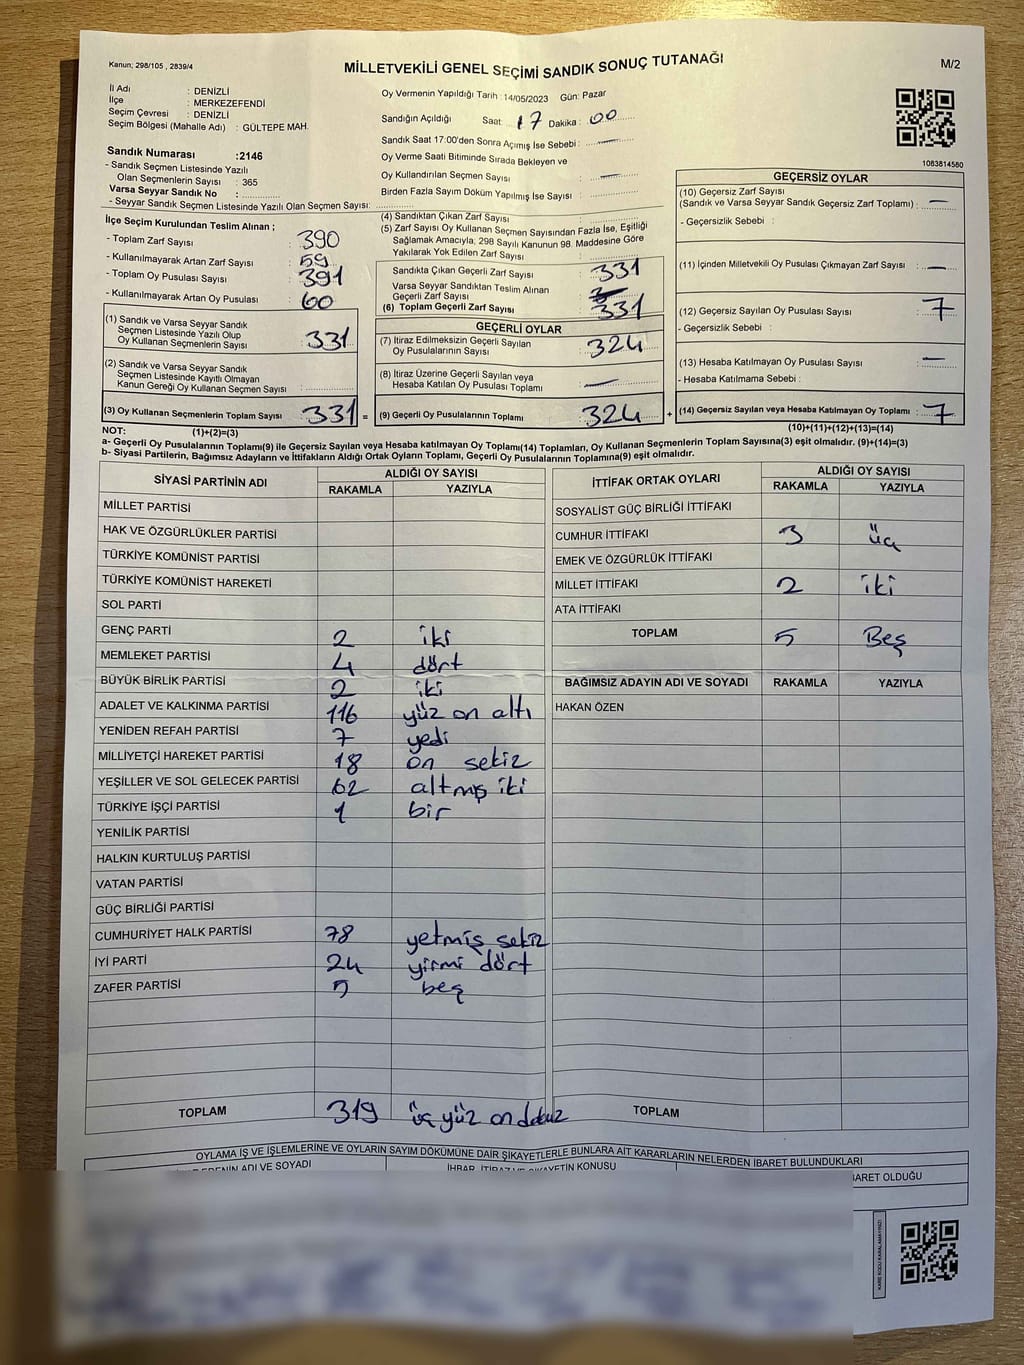 Kanun; 298/105 , 2839/4
MİLLETVEKİLİ GENEL SEÇİMİ SANDIK SONUÇ TUTANAĞI
M/2
İl Adı : DENİZLİ
İlçe : MERKEZEFENDİ
Seçim Çevresi : DENİZLİ
Seçim Bölgesi (Mahalle Adı) : GÜLTEPE MAH.
Sandık Numarası :2146
- Sandık Seçmen Listesinde Yazılı
Olan Seçmenlerin Sayısı : 365
Varsa Seyyar Sandık No :
- Seyyar Sandık Seçmen Listesinde Yazılı Olan Seçmen Sayısı:
Oy Vermenin Yapıldığı Tarih :14/05/2023 Gün: Pazar
Sandığın Açıldığı Saat 17 Dakika : 00
Sandık Saat 17:00'den Sonra Açımış İse Sebebi : —
Oy Verme Saati Bitiminde Sırada Bekleyen ve
Oy Kullandırılan Seçmen Sayısı : —
Birden Fazla Sayım Döküm Yapılmış İse Sayısı :
1083814580
İlçe Seçim Kurulundan Teslim Alınan ;
- Toplam Zarf Sayısı : 390
- Kullanılmayarak Artan Zarf Sayısı : 59
- Toplam Oy Pusulası Sayısı : 391
- Kullanılmayarak Artan Oy Pusulası : 60
(1) Sandık ve Varsa Seyyar Sandık
Seçmen Listesinde Yazılı Olup
Oy Kullanan Seçmenlerin Sayısı : 331
(2) Sandık ve Varsa Seyyar Sandık
Seçmen Listesinde Kayıtlı Olmayan
Kanun Gereği Oy Kullanan Seçmen Sayısı :
(3) Oy Kullanan Seçmenlerin Toplam Sayısı : 331 =
(4) Sandıktan Çıkan Zarf Sayısı :
(5) Zarf Sayısı Oy Kullanan Seçmen Sayısından Fazla İse, Eşitliği
Sağlamak Amacıyla, 298 Sayılı Kanunun 98. Maddesine Göre
Yakılarak Yok Edilen Zarf Sayısı :
Sandıkta Çıkan Geçerli Zarf Sayısı : 331
Varsa Seyyar Sandıktan Teslim Alınan
Geçerli Zarf Sayısı :
(6) Toplam Geçerli Zarf Sayısı : 331
GEÇERLİ OYLAR
(7) İtiraz Edilmeksizin Geçerli Sayılan
Oy Pusulalarının Sayısı : 324
(8) İtiraz Üzerine Geçerli Sayılan veya
Hesaba Katılan Oy Pusulası Toplamı : —
(9) Geçerli Oy Pusulalarının Toplamı : 324 +
GEÇERSİZ OYLAR
(10) Geçersiz Zarf Sayısı
(Sandık ve Varsa Seyyar Sandık Geçersiz Zarf Toplamı) : —
- Geçersizlik Sebebi :
(11) İçinden Milletvekili Oy Pusulası Çıkmayan Zarf Sayısı : —
(12) Geçersiz Sayılan Oy Pusulası Sayısı : 7
- Geçersizlik Sebebi :
(13) Hesaba Katılmayan Oy Pusulası Sayısı : —
- Hesaba Katılmama Sebebi :
(14) Geçersiz Sayılan veya Hesaba Katılmayan Oy Toplamı : 7
NOT: (1)+(2)=(3)
(10)+(11)+(12)+(13)=(14)
a- Geçerli Oy Pusulalarının Toplamı(9) ile Geçersiz Sayılan veya Hesaba katılmayan Oy Toplamı(14) Toplamları, Oy Kullanan Seçmenlerin Toplam Sayısına(3) eşit olmalıdır. (9)+(14)=(3)
b- Siyasi Partilerin, Bağımsız Adayların ve İttifakların Aldığı Ortak Oyların Toplamı, Geçerli Oy Pusulalarının Toplamına(9) eşit olmalıdır.
SİYASİ PARTİNİN ADI ALDIĞI OY SAYISI
RAKAMLA YAZIYLA
MİLLET PARTİSİ
HAK VE ÖZGÜRLÜKLER PARTİSİ
TÜRKİYE KOMÜNİST PARTİSİ
TÜRKİYE KOMÜNİST HAREKETİ
SOL PARTİ
GENÇ PARTİ 2 iki
MEMLEKET PARTİSİ 4 dört
BÜYÜK BİRLİK PARTİSİ 2 iki
ADALET VE KALKINMA PARTİSİ 116 yüz on altı
YENİDEN REFAH PARTİSİ 7 yedi
MİLLİYETÇİ HAREKET PARTİSİ 18 on sekiz
YEŞİLLER VE SOL GELECEK PARTİSİ 62 altmış iki
TÜRKİYE İŞÇİ PARTİSİ 1 bir
YENİLİK PARTİSİ
HALKIN KURTULUŞ PARTİSİ
VATAN PARTİSİ
GÜÇ BİRLİĞİ PARTİSİ
CUMHURİYET HALK PARTİSİ 78 yetmiş sekiz
İYİ PARTİ 24 yirmi dört
ZAFER PARTİSİ 5 beş
TOPLAM 319 üç yüz on dokuz
İTTİFAK ORTAK OYLARI ALDIĞI OY SAYISI
RAKAMLA YAZIYLA
SOSYALİST GÜÇ BİRLİĞİ İTTİFAKI
CUMHUR İTTİFAKI 3 üç
EMEK VE ÖZGÜRLÜK İTTİFAKI
MİLLET İTTİFAKI 2 iki
ATA İTTİFAKI
TOPLAM 5 Beş
BAĞIMSIZ ADAYIN ADI VE SOYADI RAKAMLA YAZIYLA
HAKAN ÖZEN
TOPLAM
OYLAMA İŞ VE İŞLEMLERİNE VE OYLARIN SAYIM DÖKÜMÜNE DAİR ŞİKAYETLERLE BUNLARA AİT KARARLARIN NELERDEN İBARET BULUNDUKLARI
EDENİN ADI VE SOYADI İHBAR, İTİRAZ VE ŞİKAYETİN KONUSU BARET OLDUĞU
KARE KODU KARALAMAYINIZ!